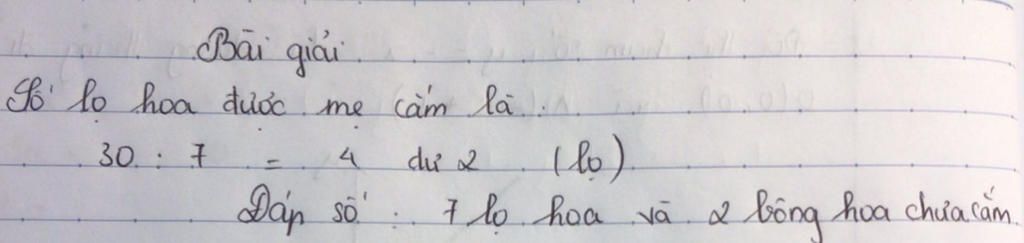 Bài giải
Số lọ hoa được mẹ cắm là:
30 : 7 = 4 dư 2 (lọ)
Đáp số: 7 lọ hoa và 2 bông hoa chưa cắm.